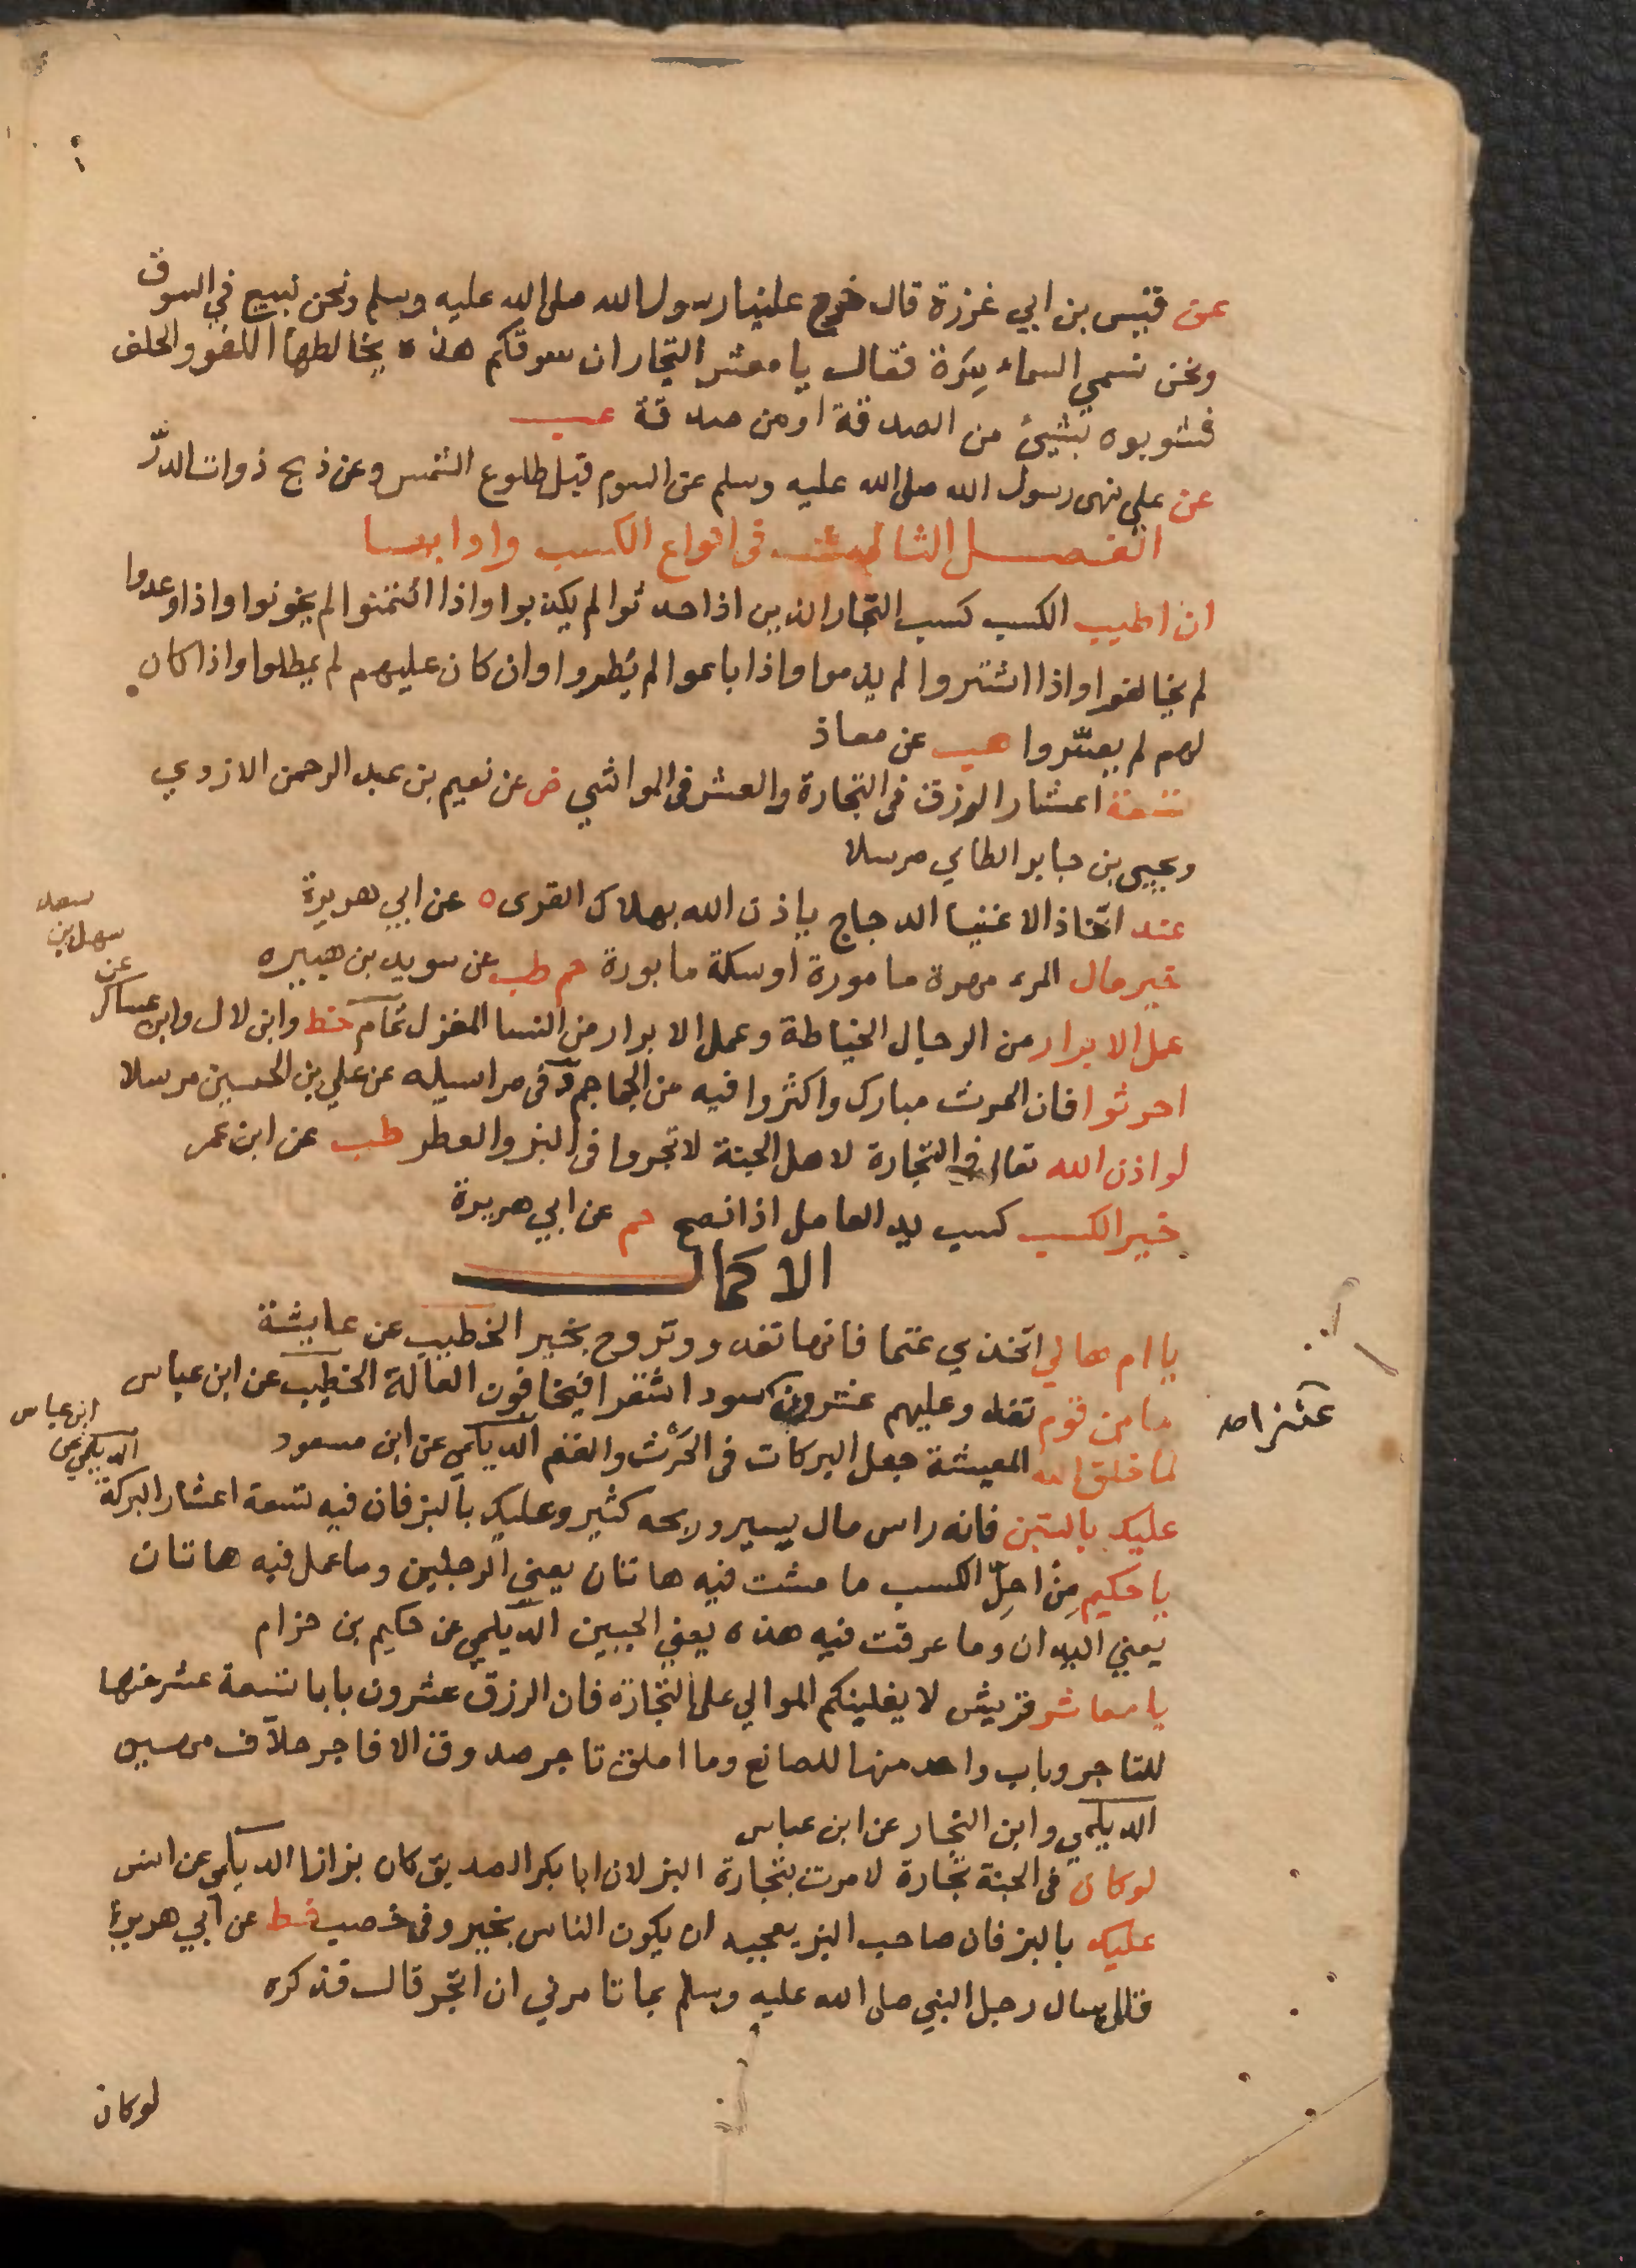 عن قيس بن ابي غرزة قال خرج علينا رسول الله صلى الله عليه وسلم ونحن نبيع في السوق
ونحن نسمى السماسرة فقال يا معشر التجار ان سوقكم هذه يخالطها اللغو والحلف
فشوبوه بشيئ من الصدقة او من صدقة عب
عن علي نهى رسول الله صلى الله عليه وسلم عن السوم قبل طلوع الشمس وعن ذبح ذوات الدرّ
الفصل الثالث في انواع الكسب وادابها
ان اطيب الكسب كسب التجار الذين اذا حدثوا لم يكذبوا واذا ائتمنوا لم يخونوا واذا وعدوا
لم يخالفوا واذا اشتروا لم يذموا واذا باعوا لم يطروا وان كان عليهم لم يمطلوا واذا كان
لهم لم يعسّروا هب عن معاذ
تسعة اعشار الرزق في التجارة والعشر في المواشي ض عن نعيم بن عبد الرحمن الازدي
ويحيى بن جابر الطاي مرسلا
عند اتخاذ الاغنيا الدجاج ياذن الله بهلاك القرى ه عن ابي هريرة
خير مال المرء مهرة مامورة او سكة مابورة حم طب عن سويد بن هبيره
عمل الابرار من الرجال الخياطة وعمل الابرار من النسا المغزل تمام خط وابن لال وابن عساكر
عن
سهل بن
سعد
احرثوا فان الحرث مبارك واكثروا فيه من الجماجم د في مراسيله عن علي بن الحسين مرسلا
لو اذن الله تعالى في التجارة لاهل الجنة لاتجروا في البز والعطر طب عن ابن عمر
خير الكسب كسب يد العامل اذا نصح حم عن ابي هريرة
الاكمال
يا ام هاني اتخذي غنما فانها تغدو وتروح بخير الخطيب عن عايشة
ما من قوم تغدو عليهم عشرون سودا شقرا فيخافون العالة الخطيب عن ابن عباس
عنز اهـ
لما خلق الله المعيشة جعل البركات في الحرث والغنم الديلمي عن ابن مسعود
عليك بالتبن فانه راس مال يسير وربحه كثير وعليك بالبز فان فيه تسعة اعشار البركة
الديلمي عن
ابن عباس
يا حكيم مِنْ احِلّ الكسب ما مشت فيه هاتان يعني الرجلين وما عمل فيه هاتان
يعني اليدان وما عرقت فيه هذه يعني الجبين الديلمي عن حكيم بن حزام
يا معاشر قريش لا يغلبنكم الموالي على التجارة فان الرزق عشرون بابا تسعة عشر منها
للتاجر وباب واحد منها للصانع وما املق تاجر صدوق الا فاجر حلاف مهين
الديلمي وابن النجار عن ابن عباس
لو كان في الجنة تجارة لامرت بتجارة البز لان ابا بكر الصديق كان بزازا الديلمي عن انس
عليك بالبز فان صاحب البز يعجبه ان يكون الناس بخير وفي خصب خط عن ابي هريرة
قال سال رجل النبي صلى الله عليه وسلم بما تامرني ان اتجر قال فذكره
لو كان